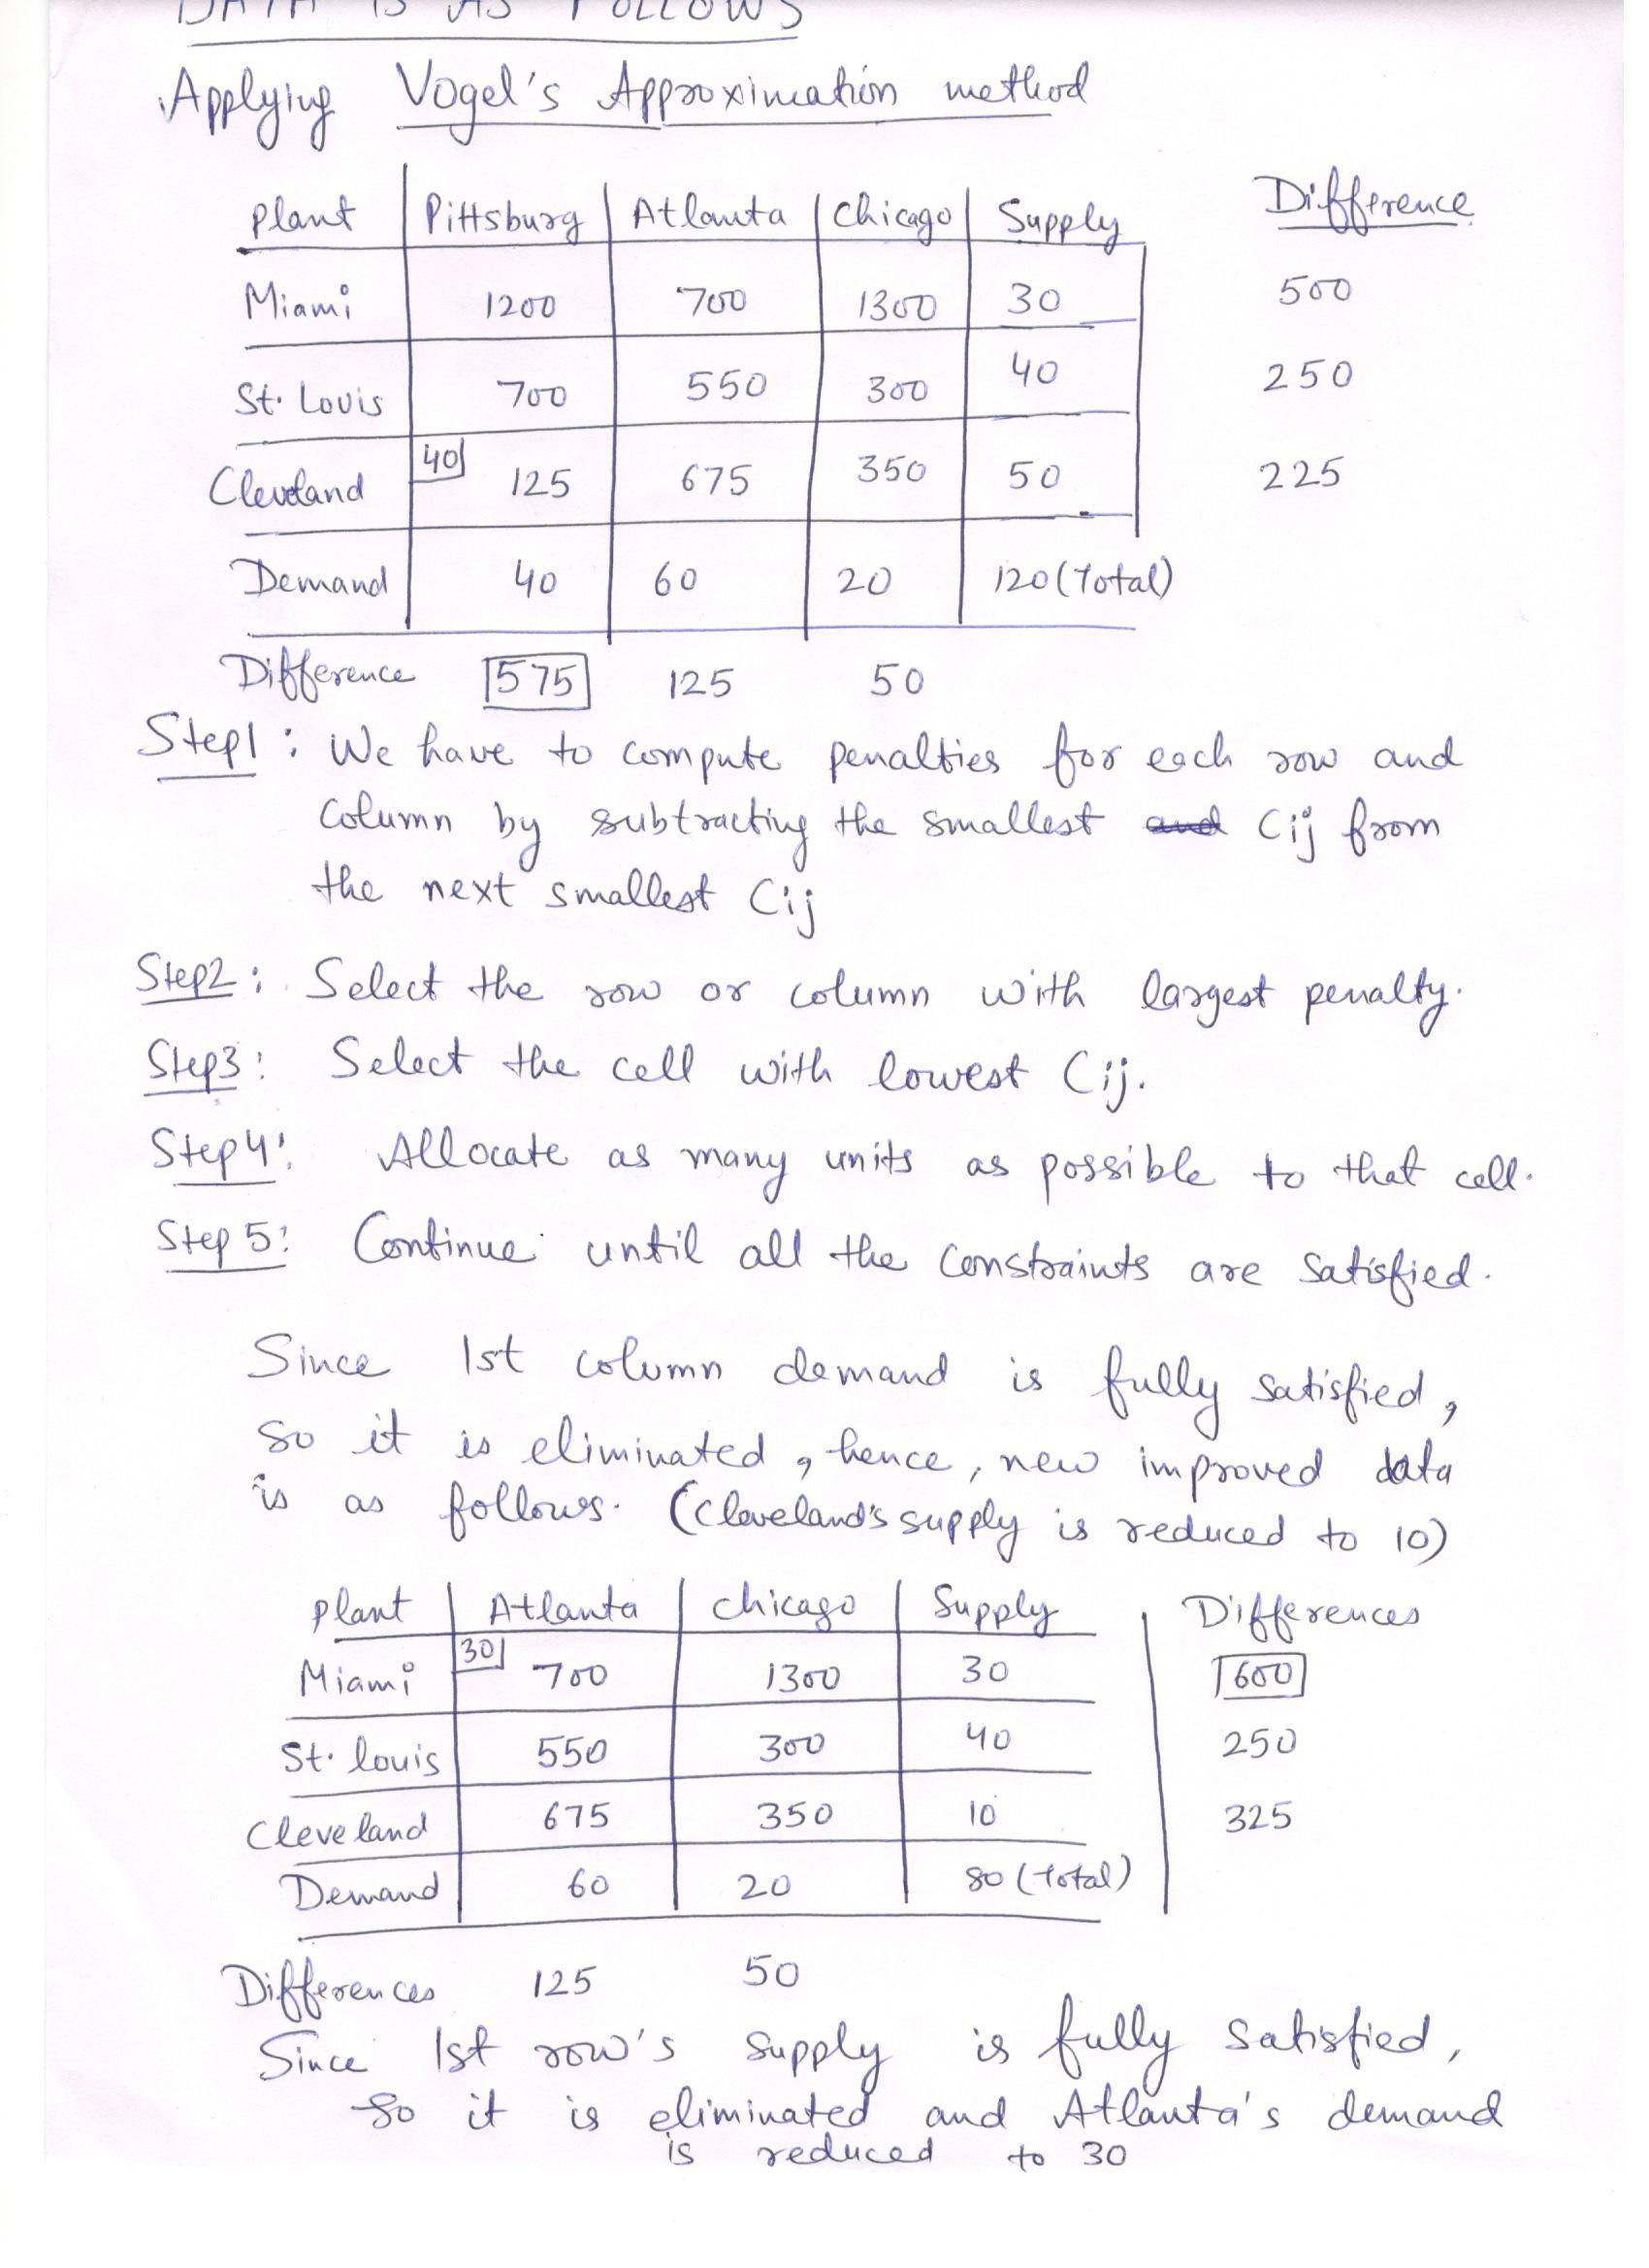 DATA IS AS FOLLOWS
Applying Vogel's Approximation method
Plant Pittsburg Atlanta Chicago Supply Difference
Miami 1200 700 1300 30 500
St. Louis 700 550 300 40 250
Cleveland 40 125 675 350 50 225
Demand 40 60 20 120 (Total)
Difference 575 125 50
Step1: We have to compute penalties for each row and
column by subtracting the smallest and Cij from
the next smallest Cij
Step2: Select the row or column with largest penalty.
Step3: Select the cell with lowest Cij.
Step4: Allocate as many units as possible to that cell.
Step 5: Continue until all the constraints are satisfied.
Since 1st column demand is fully satisfied,
so it is eliminated, hence, new improved data
is as follows. (Cleveland's supply is reduced to 10)
Plant Atlanta Chicago Supply Differences
Miami 30 700 1300 30 600
St. louis 550 300 40 250
Cleveland 675 350 10 325
Demand 60 20 80 (Total)
Differences 125 50
Since 1st row's supply is fully satisfied,
so it is eliminated and Atlanta's demand
is reduced to 30